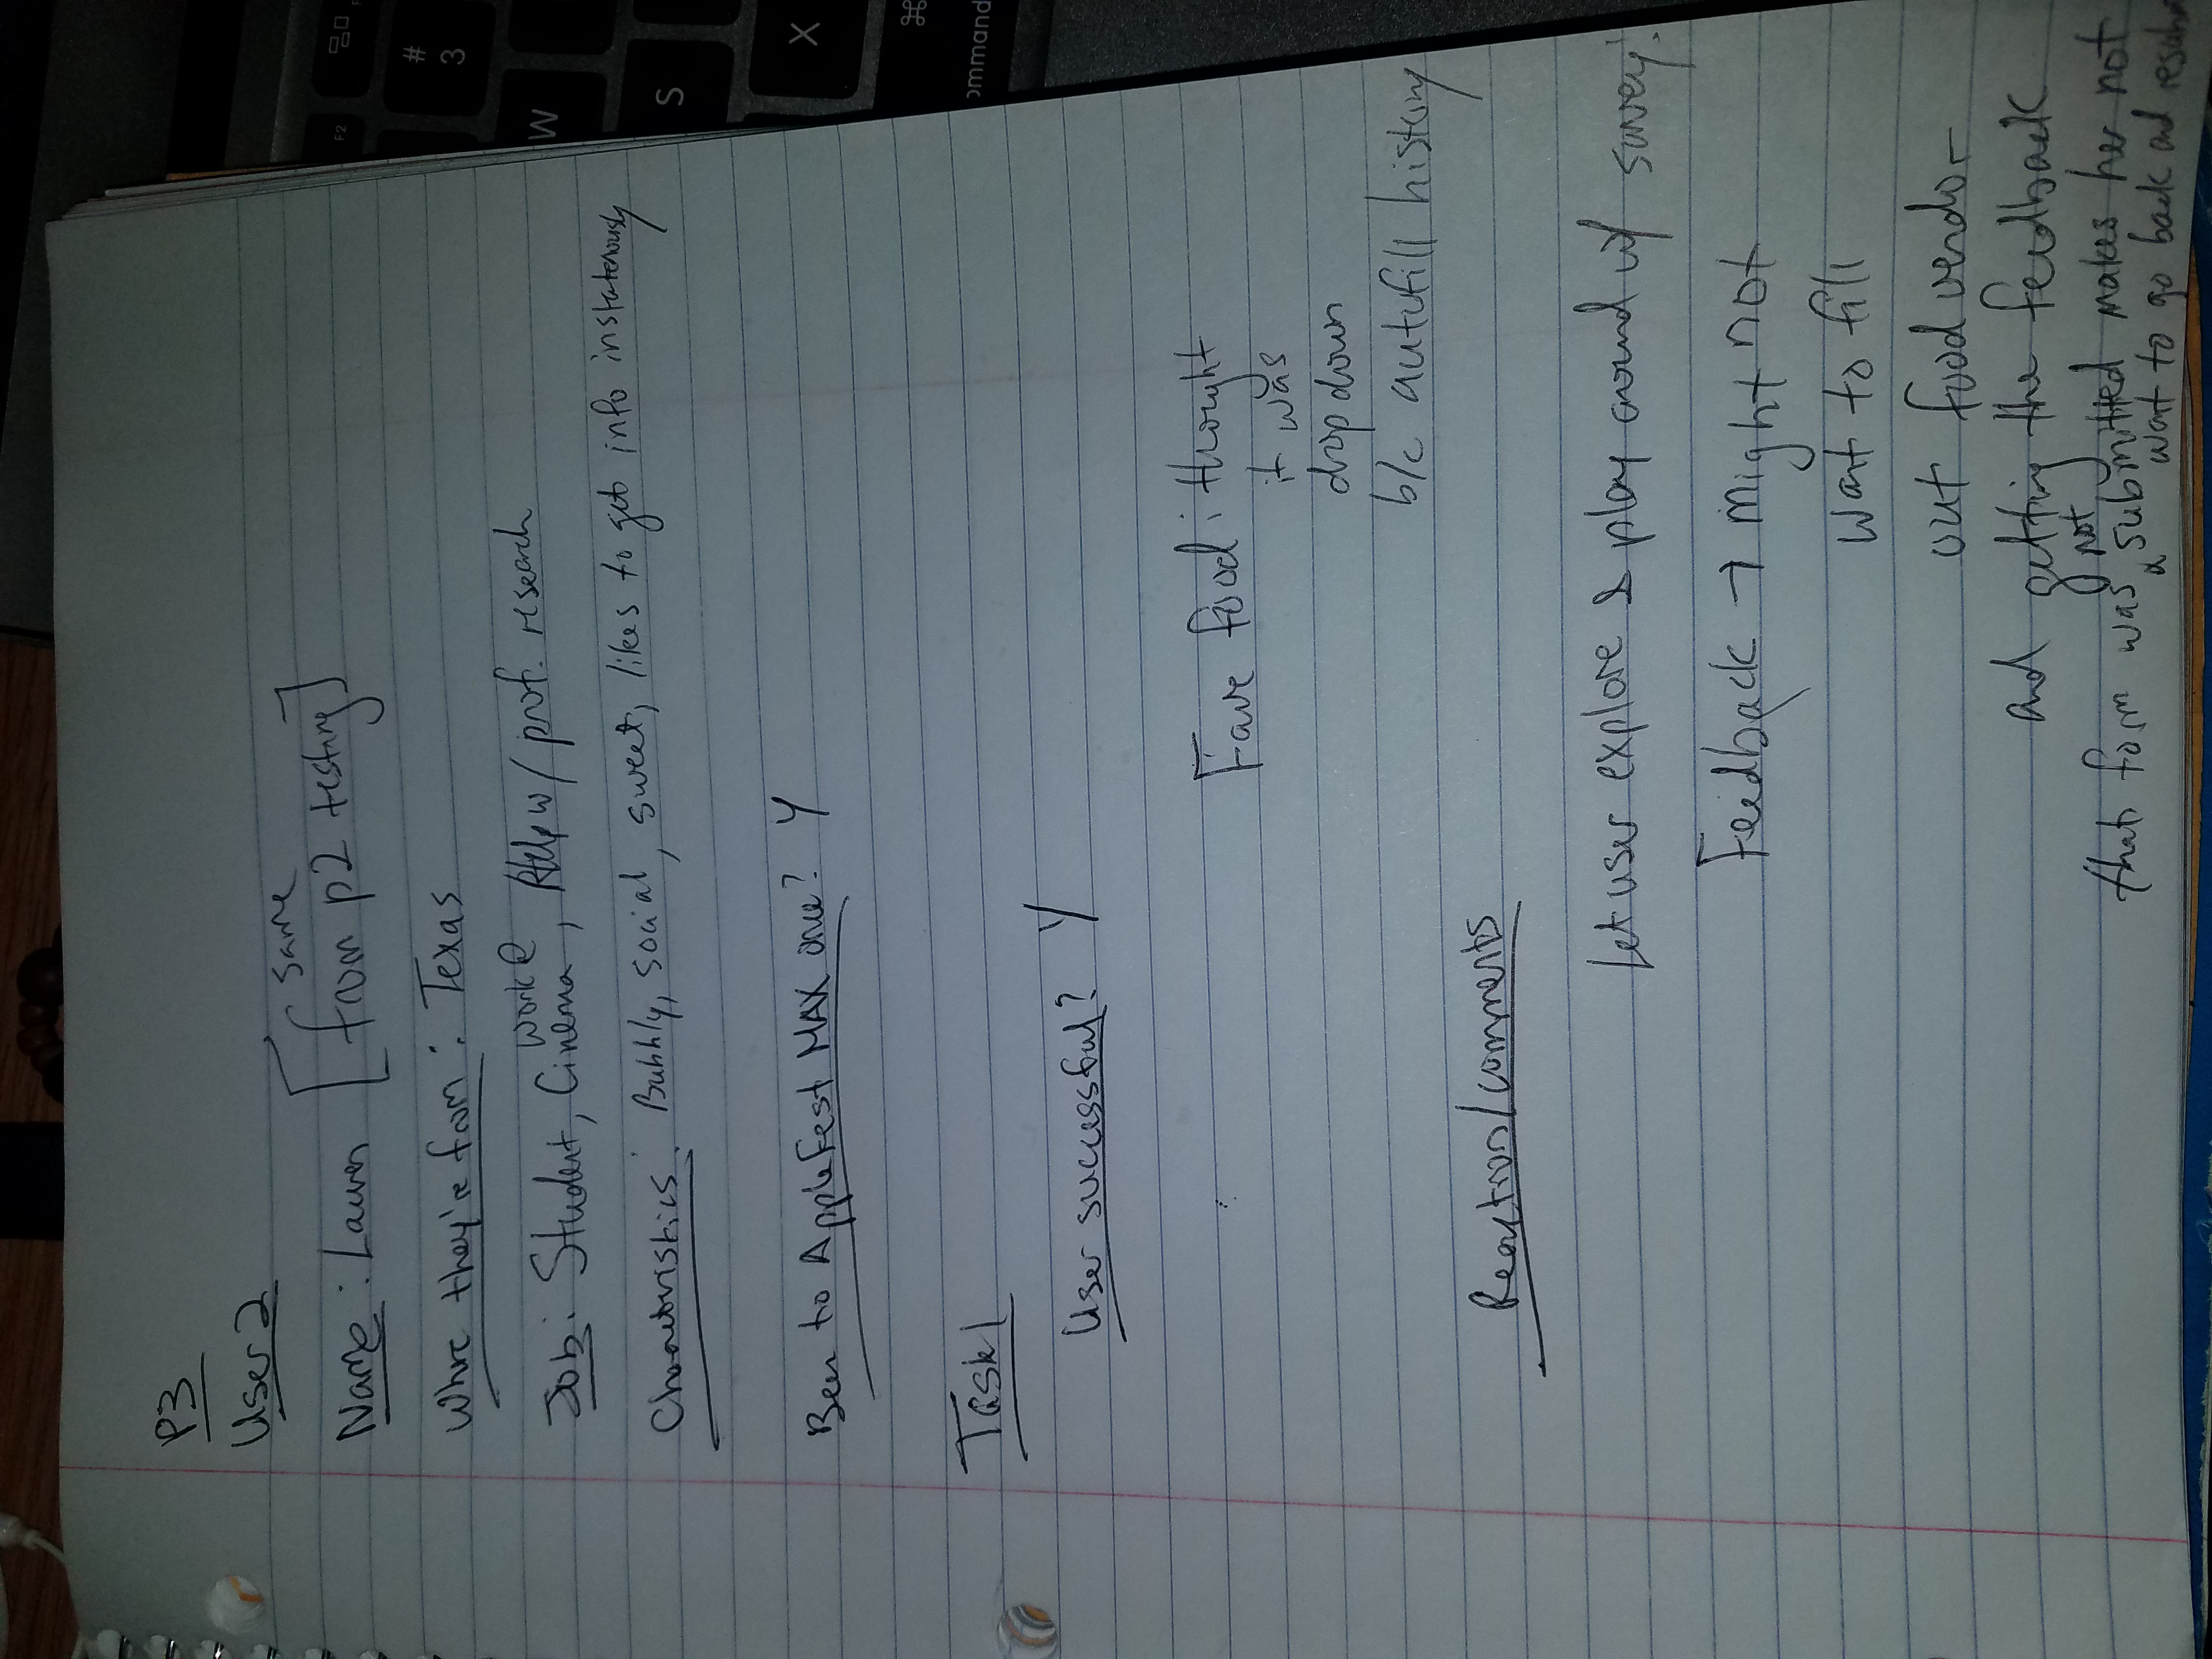 P3
User 2
same
Name: Lauren [from p2 testing]
Where they're from: Texas
work @
Job: Student, Cinema, Help w/ prof. research
Characteristics: Bubbly, social, sweet, likes to get info
Been to AppleFest MAX once? Y
Task 1
User successful? Y
Fave food: thought
it was
dropdown
b/c autofill history
Reaction/comments
Let user explore & play around w/ survey!
Feedback → might not
want to fill
out food vendor
and getting the feedback
not
that form was ^ submitted makes her not
want to go back and
F2
#
3
W
S
X
⌘
ommand